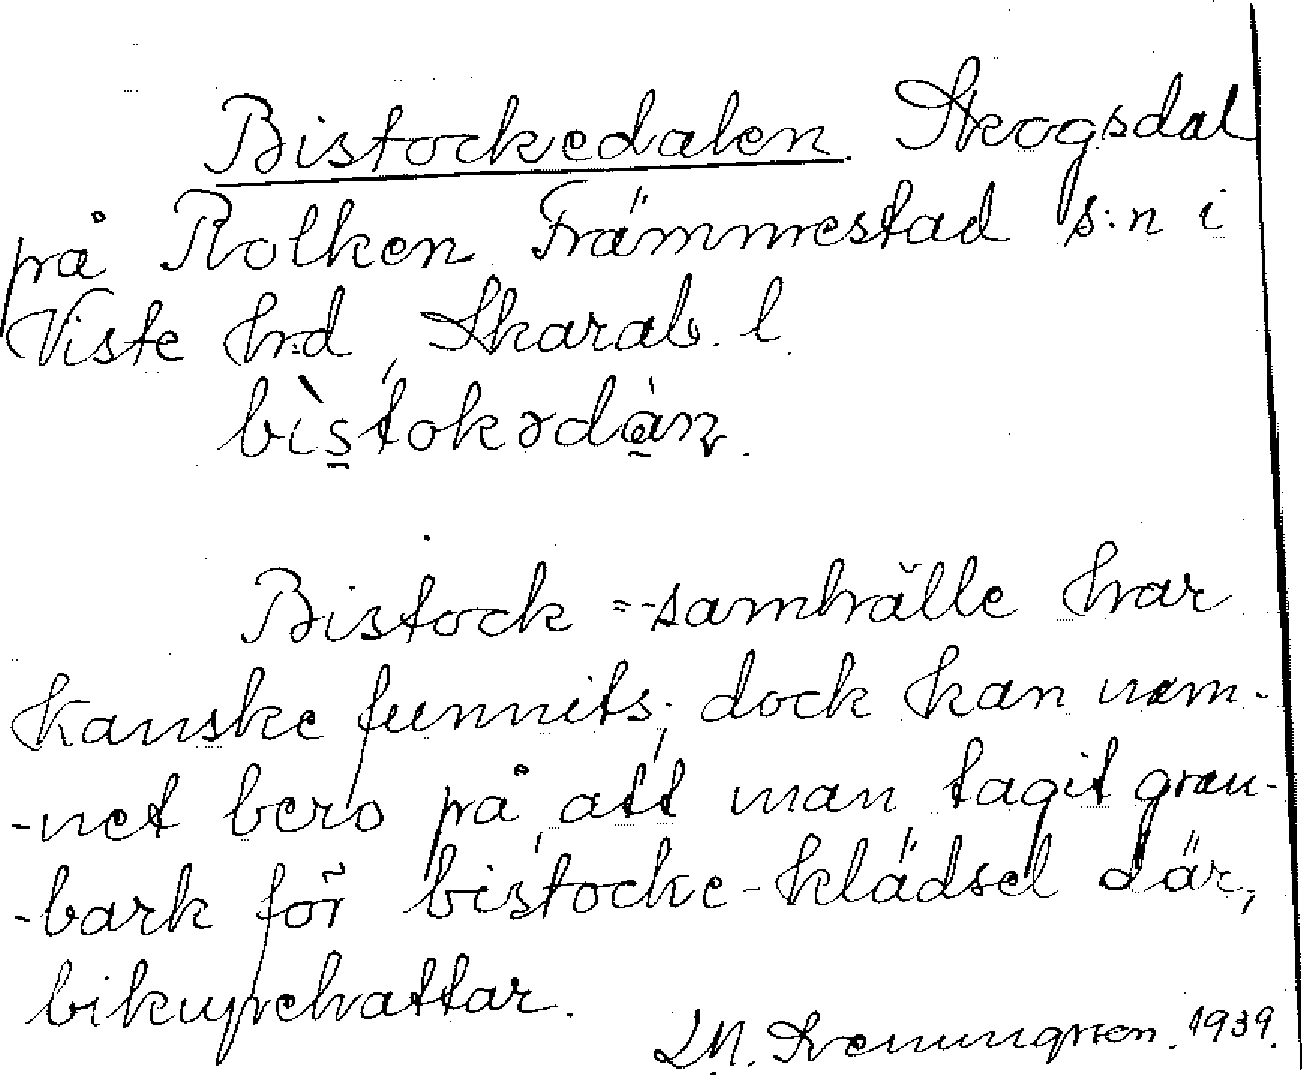 Bistockedalen. Skogsdal
på Rolken Främmestad s:n i
Viste hrd, Skarab. l.
bìstokədàn.
Bistock=-samhälle har
kanske funnits; dock kan nam-
-net bero på, att man tagit gran-
-bark för bistocke-klädsel där,
bikupehattar.
1939.